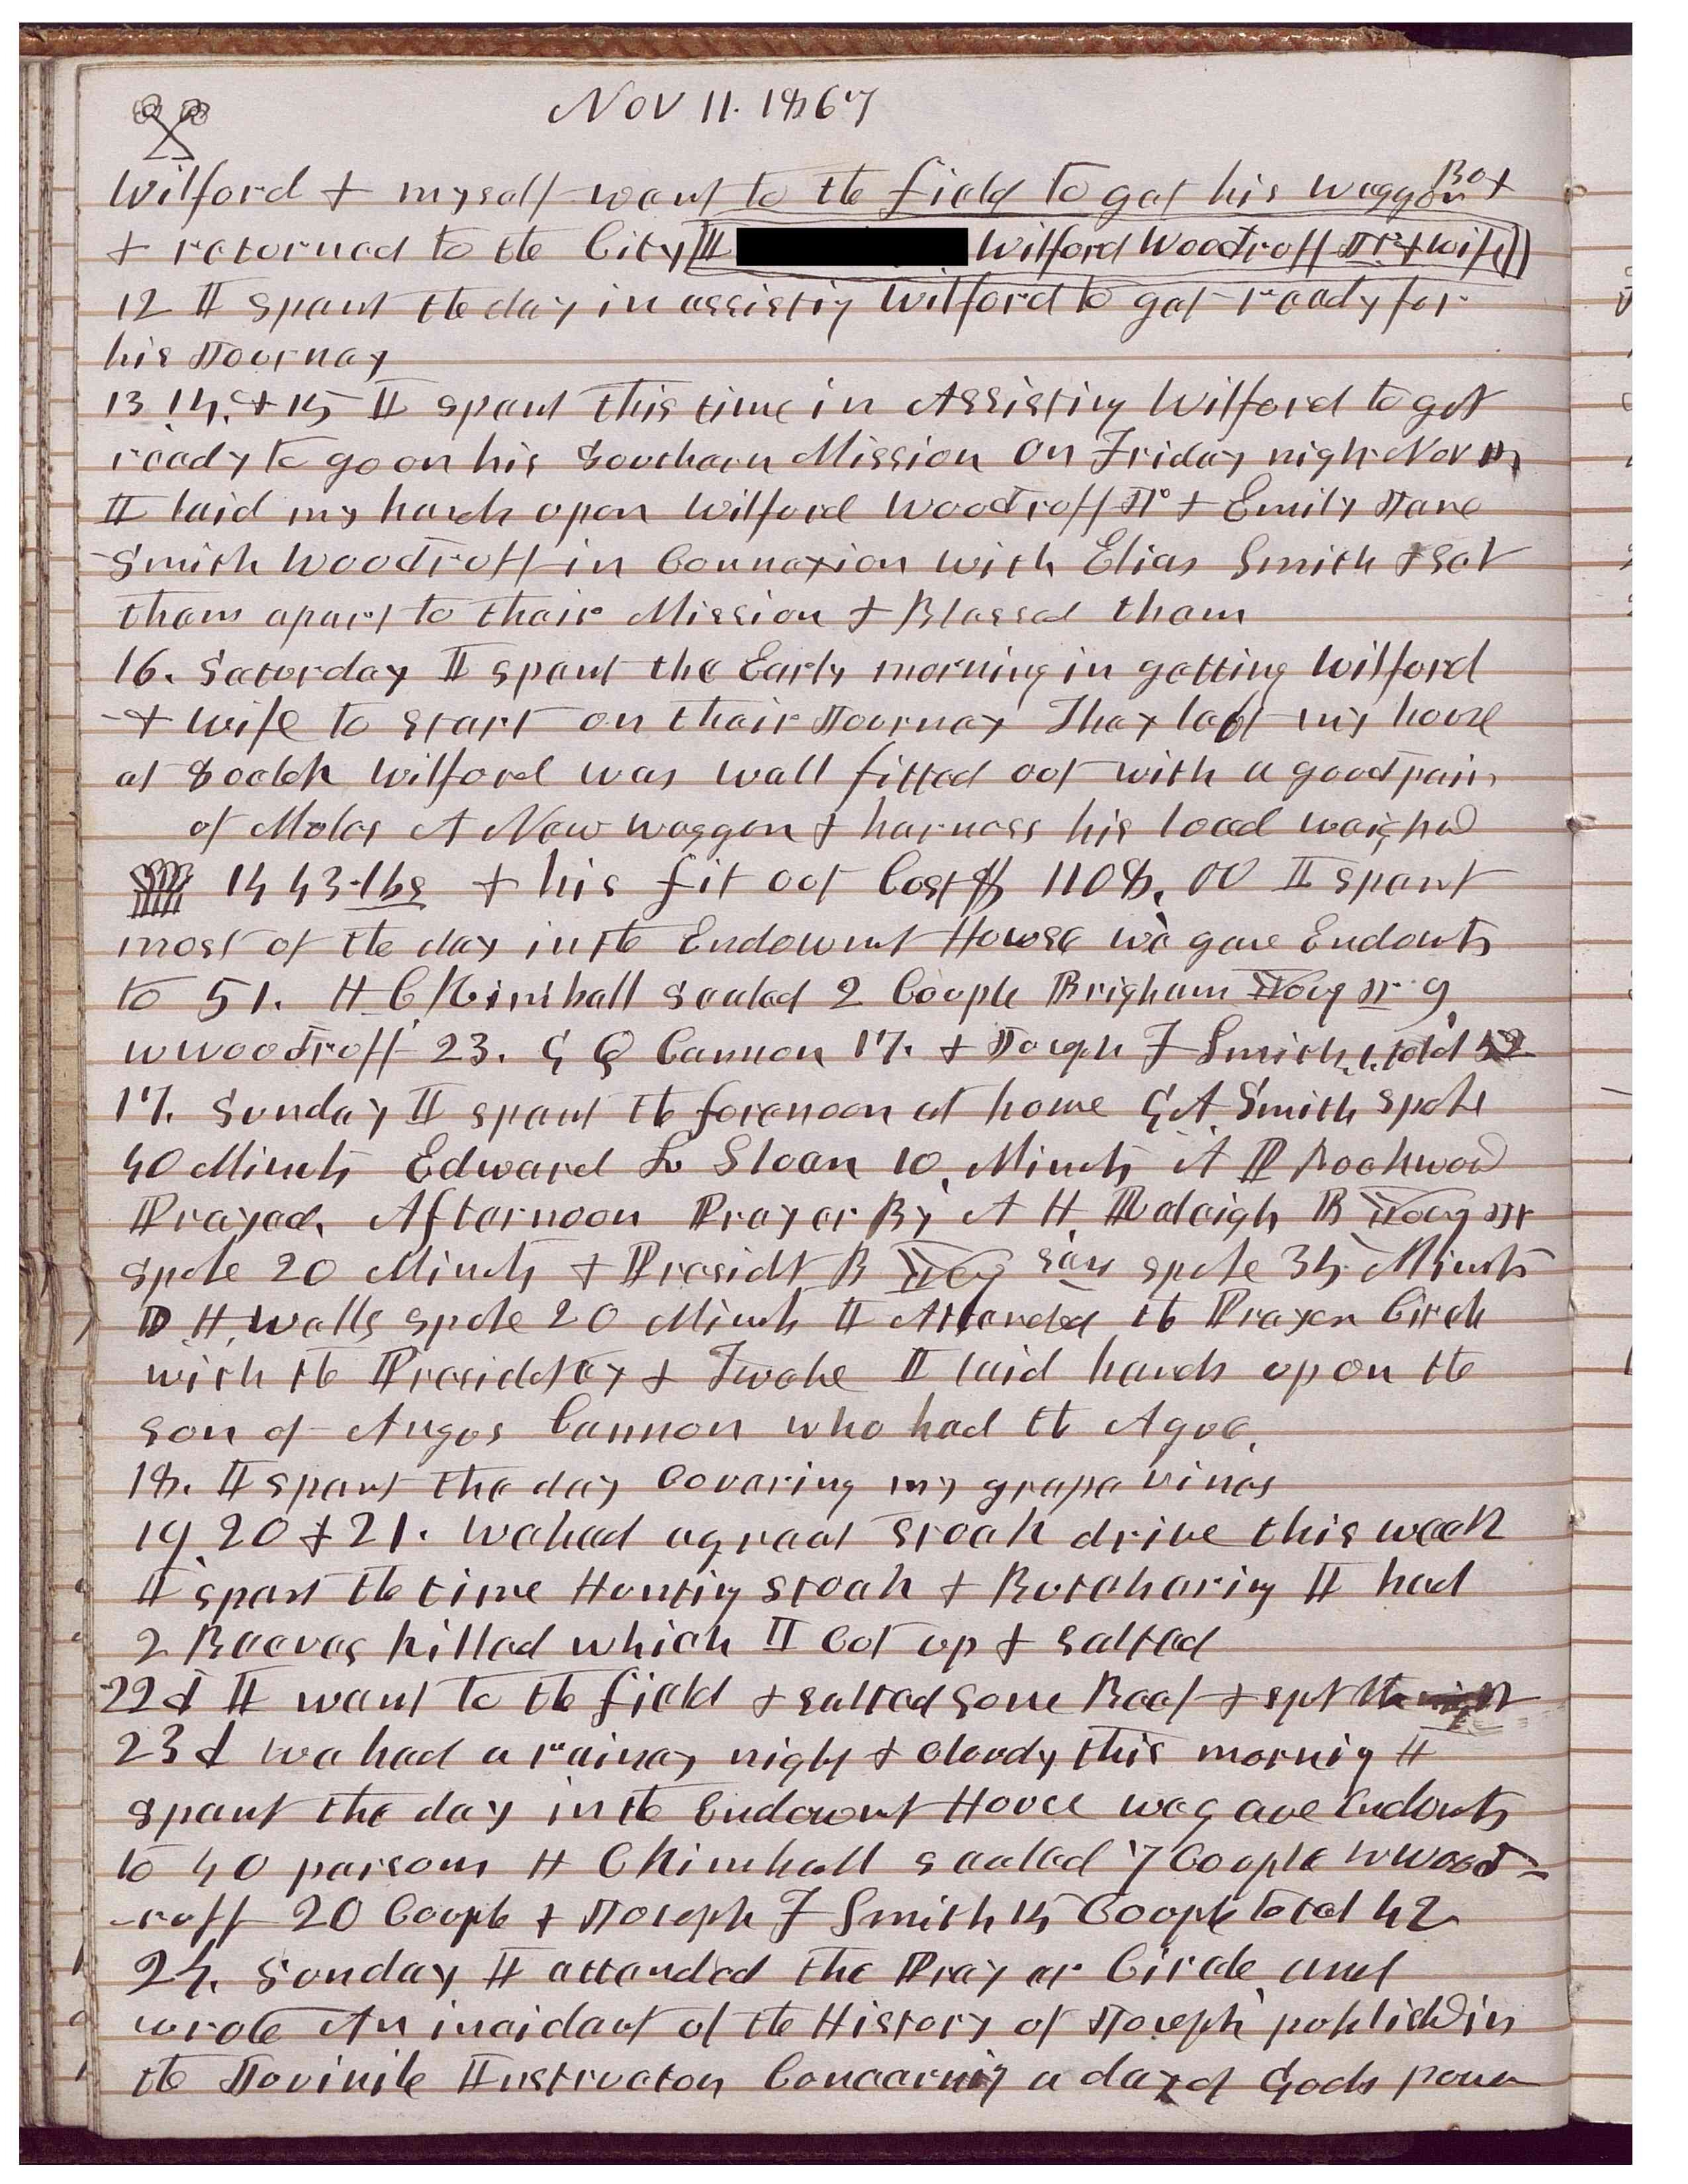 Nov 11. 1867
Wilford & myself went to the field to get his waggon Box
& returned to the City Wilford Woodruff Jr & wife
12 I spent the day in assisting Wilford to get ready for
his Journey
13 14, & 15 I spent this time in Assisting Wilford to get
ready to go on his Southern Mission On Friday night Nov 15
I laid my hands upon Wilford Woodruff Jr & Emily Jane
Smith Woodruff in Connexion with Elias Smith & Set
them apart to their Mission & Blessed them
16. Saturday I spent the Early morning in getting Wilford
& wife to start on their Journey They left my house
at 8 oclok Wilford was well fitted out with a good pair
of Mules A New waggon & harness his load weighed
1443 lbs & his fit out Cost $1108.00 I spent
most of the day in the Endowmt House we gave Endowts
to 51. H C Kimball sealed 2 Couple Brigham Young Jr 9
W Woodruff 23. G Q Cannon 17. & Joseph F Smith 1. total 52
17. Sunday I spent the forenoon at home G A Smith spoke
40 Minuts Edward L Sloan 10, Minuts A P Rockwood
Prayed. Afternoon Prayer By A H Raleigh B Young Jr
spoke 20 Minuts & Presidt B Young Sen spoke 35 Minuts
D H. Wells spoke 20 Minuts I Attended the Prayer Circle
with the Presidency & Twelve I laid hands upon the
son of Angus Cannon who had the Ague.
18. I spent the day Covering my grape vines
19 20 & 21. We had a great Stock drive this week
I spent the time Hunting stock & Butchering I had
2 Beeves killed which I cut up & salted
22d I went to the field & salted some Beef & spt the night
23d we had a rainey night & cloudy this mornig I
spent the day in the Endowmt House we gave Endowts
to 40 persons H C Kimball sealed 7 Couple W Wood-
-ruff 20 Couple & Joseph F Smith 15 Couple total 42
24. Sunday I attended the Prayer Circle and
wrote An incident of the History of Joseph publishd in
the Juvinile Instructor Concerning a day of Gods power